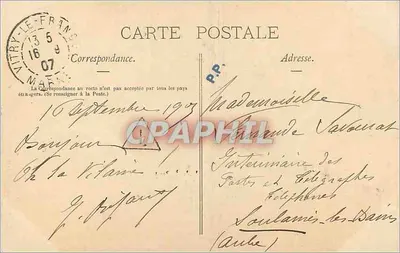 CARTE POSTALE
Correspondance.
Adresse.
VITRY-LE-FRANC
13 5
16 9
07
MARNE
P.P.
La Correspondance au recto n'est pas acceptée par tous les pays
étrangers. (Se renseigner à la Poste.)
16 Septembre 1907
Bonjour
Oh la Vilaine .....
CPAPHIL
Mademoiselle
Intérimaire des
Postes et Télégraphes
Téléphones
Soulaines-les-Bains
(Aube)